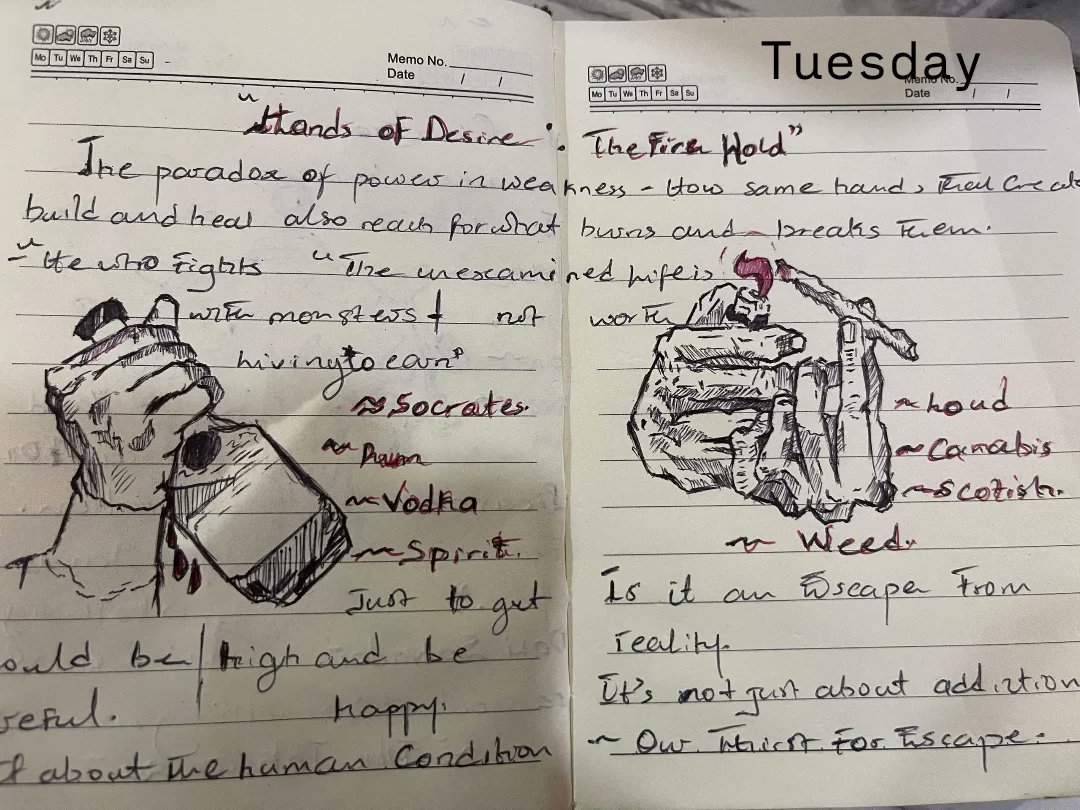 Mo Tu We Th Fr Sa Su
Memo No.
Date / /
Tuesday
Memo No.
Mo Tu We Th Fr Sa Su
Date / /
"Hands of Desire : The Firm Hold"
The paradox of power in weakness - How same hands that Create
build and heal also reach for what burns and breaks them.
- "He who fights "The unexamined life is
with monsters not worth
living to earn"
~ Socrates.
~ Loud
~ Rum
~ Canabis
~ Vodka
~ Scotish.
~ Spirit.
~ Weed.
Just to get
Is it an Escape From
ould be high and be
reality.
reful. happy.
It's not just about addiction
about The human Condition
~ Our Thirst For Escape.